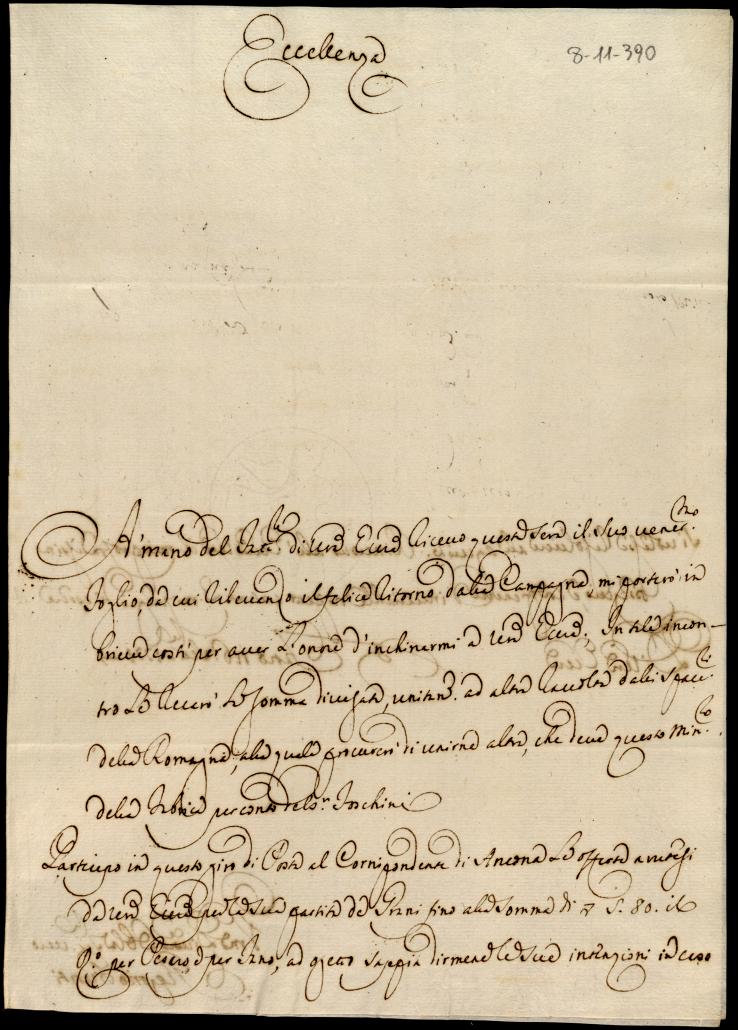 Eccellenza
8-11-390
A' mano del di Vrã Eccã Ricevo questa sera il suo vener.mo
foglio, da cui rilevando il felice ritorno dalla Campagna, mi porterò in
breve costì per aver l'onore d'inchinarmi a Vrã Eccã; In tal incon-
tro Le recarò la somma divisata, unitam. ad altra raccolta dalli Spacc.li
della Romagna, alla quale procurerò di unirne altra, che deve questo Min.ro
della per conto del S.r Foschini
Partecipo in questo giro di Posta al Corrispondente di Ancona Le offerte
da Vrã Eccã per la sua partita de Grani fino alla somma di S. 80. il
R.o per Pesaro, e per Fano, ad oggetto sappia dirmene le sue intenzioni in caso